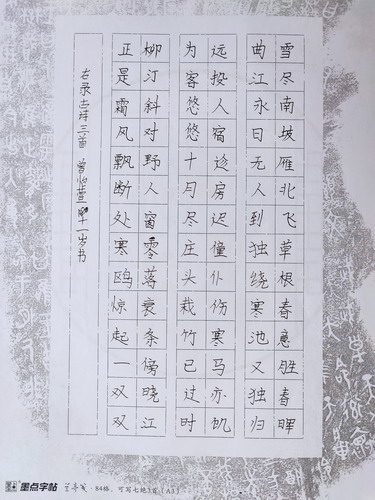 雪尽南坡雁北飞草根春意胜春晖
曲江永日无人到独绕寒池又独归
远投人宿趁房迟僮仆伤寒马亦饥
为客悠悠十月尽庄头栽竹已过时
柳汀斜对野人窗零落衰条傍晓江
正是霜风飘断处寒鸥惊起一双双
右录古诗三首 曾怡萱 十一岁书
墨点字帖 ·84格，可写七绝3首（A3）